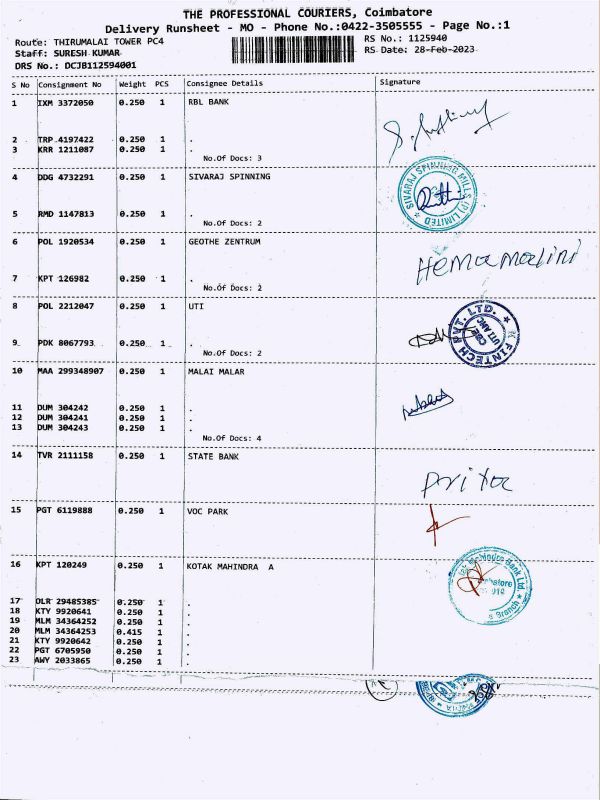 THE PROFESSIONAL COURIERS, Coimbatore
Delivery Runsheet - MO - Phone No.:0422-3505555 - Page No.:1
Route: THIRUMALAI TOWER PC4
RS No.: 1125940
Staff: SURESH KUMAR
RS Date: 28-Feb-2023
DRS No.: DCJB112594001
S No Consignment No Weight PCS Consignee Details Signature
1 IXM 3372050 0.250 1 RBL BANK
2 TRP 4197422 0.250 1 .
3 KRR 1211087 0.250 1 .
No.Of Docs: 3
4 DDG 4732291 0.250 1 SIVARAJ SPINNING
SIVARAJ SPINNING MILLS (P) LIMITED
5 RMD 1147813 0.250 1 .
No.Of Docs: 2
6 POL 1920534 0.250 1 GEOTHE ZENTRUM
Hemamalini
7 KPT 126982 0.250 1 .
No.Of Docs: 2
8 POL 2212047 0.250 1 UTI
K FINTECH PVT. LTD.
CBE
UTI AMC
9 PDK 8067793 0.250 1 .
No.Of Docs: 2
10 MAA 299348907 0.250 1 MALAI MALAR
11 DUM 304242 0.250 1 .
12 DUM 304241 0.250 1 .
13 DUM 304243 0.250 1 .
No.Of Docs: 4
14 TVR 2111158 0.250 1 STATE BANK
15 PGT 6119888 0.250 1 VOC PARK
16 KPT 120249 0.250 1 KOTAK MAHINDRA A
Mahindra Bank Ltd
Branch
17 OLR 29485385 0.250 1 .
18 KTY 9920641 0.250 1 .
19 MLM 34364252 0.250 1 .
20 MLM 34364253 0.415 1 .
21 KTY 9920642 0.250 1 .
22 PGT 6705950 0.250 1 .
23 AWY 2033865 0.250 1 .